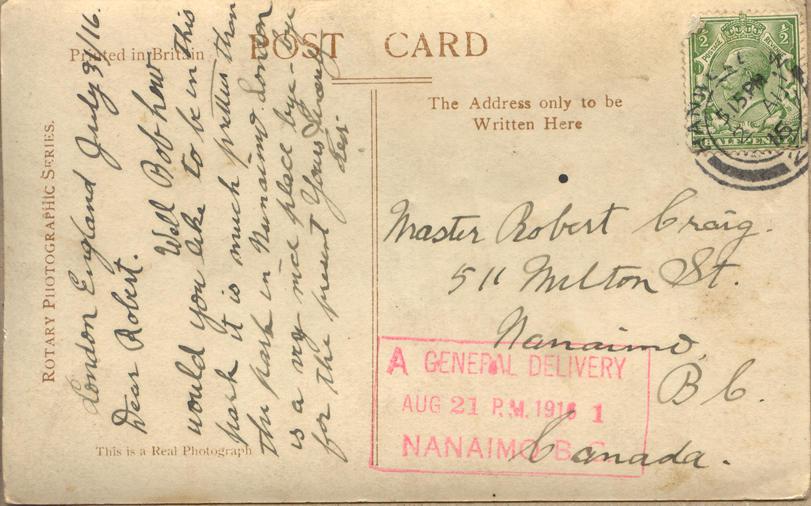 Printed in Britain
POST CARD
The Address only to be
Written Here
ROTARY PHOTOGRAPHIC SERIES.
This is a Real Photograph
London England July 31/16.
Dear Robert.
Well Bob how
would you like to be in this
park it is much prettier than
the park in Nanaimo London
is a very nice place bye-bye
for the present Yours
Master Robert Craig.
511 Milton St.
Nanaimo,
B C.
Canada.
A GENERAL DELIVERY
AUG 21 P.M. 1916 1
NANAIMO B.C.
½ ½
HALFPENNY
5 15 PM